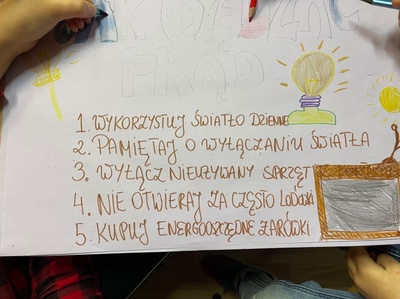 JAK OSZCZĘDZAĆ
PRĄD
1. WYKORZYSTUJ ŚWIATŁO DZIENNE
2. PAMIĘTAJ O WYŁĄCZANIU ŚWIATŁA
3. WYŁĄCZ NIEUŻYWANY SPRZĘT
4. NIE OTWIERAJ ZA CZĘSTO LODÓWKI
5. KUPUJ ENERGOOSZCZĘDNE ŻARÓWKI